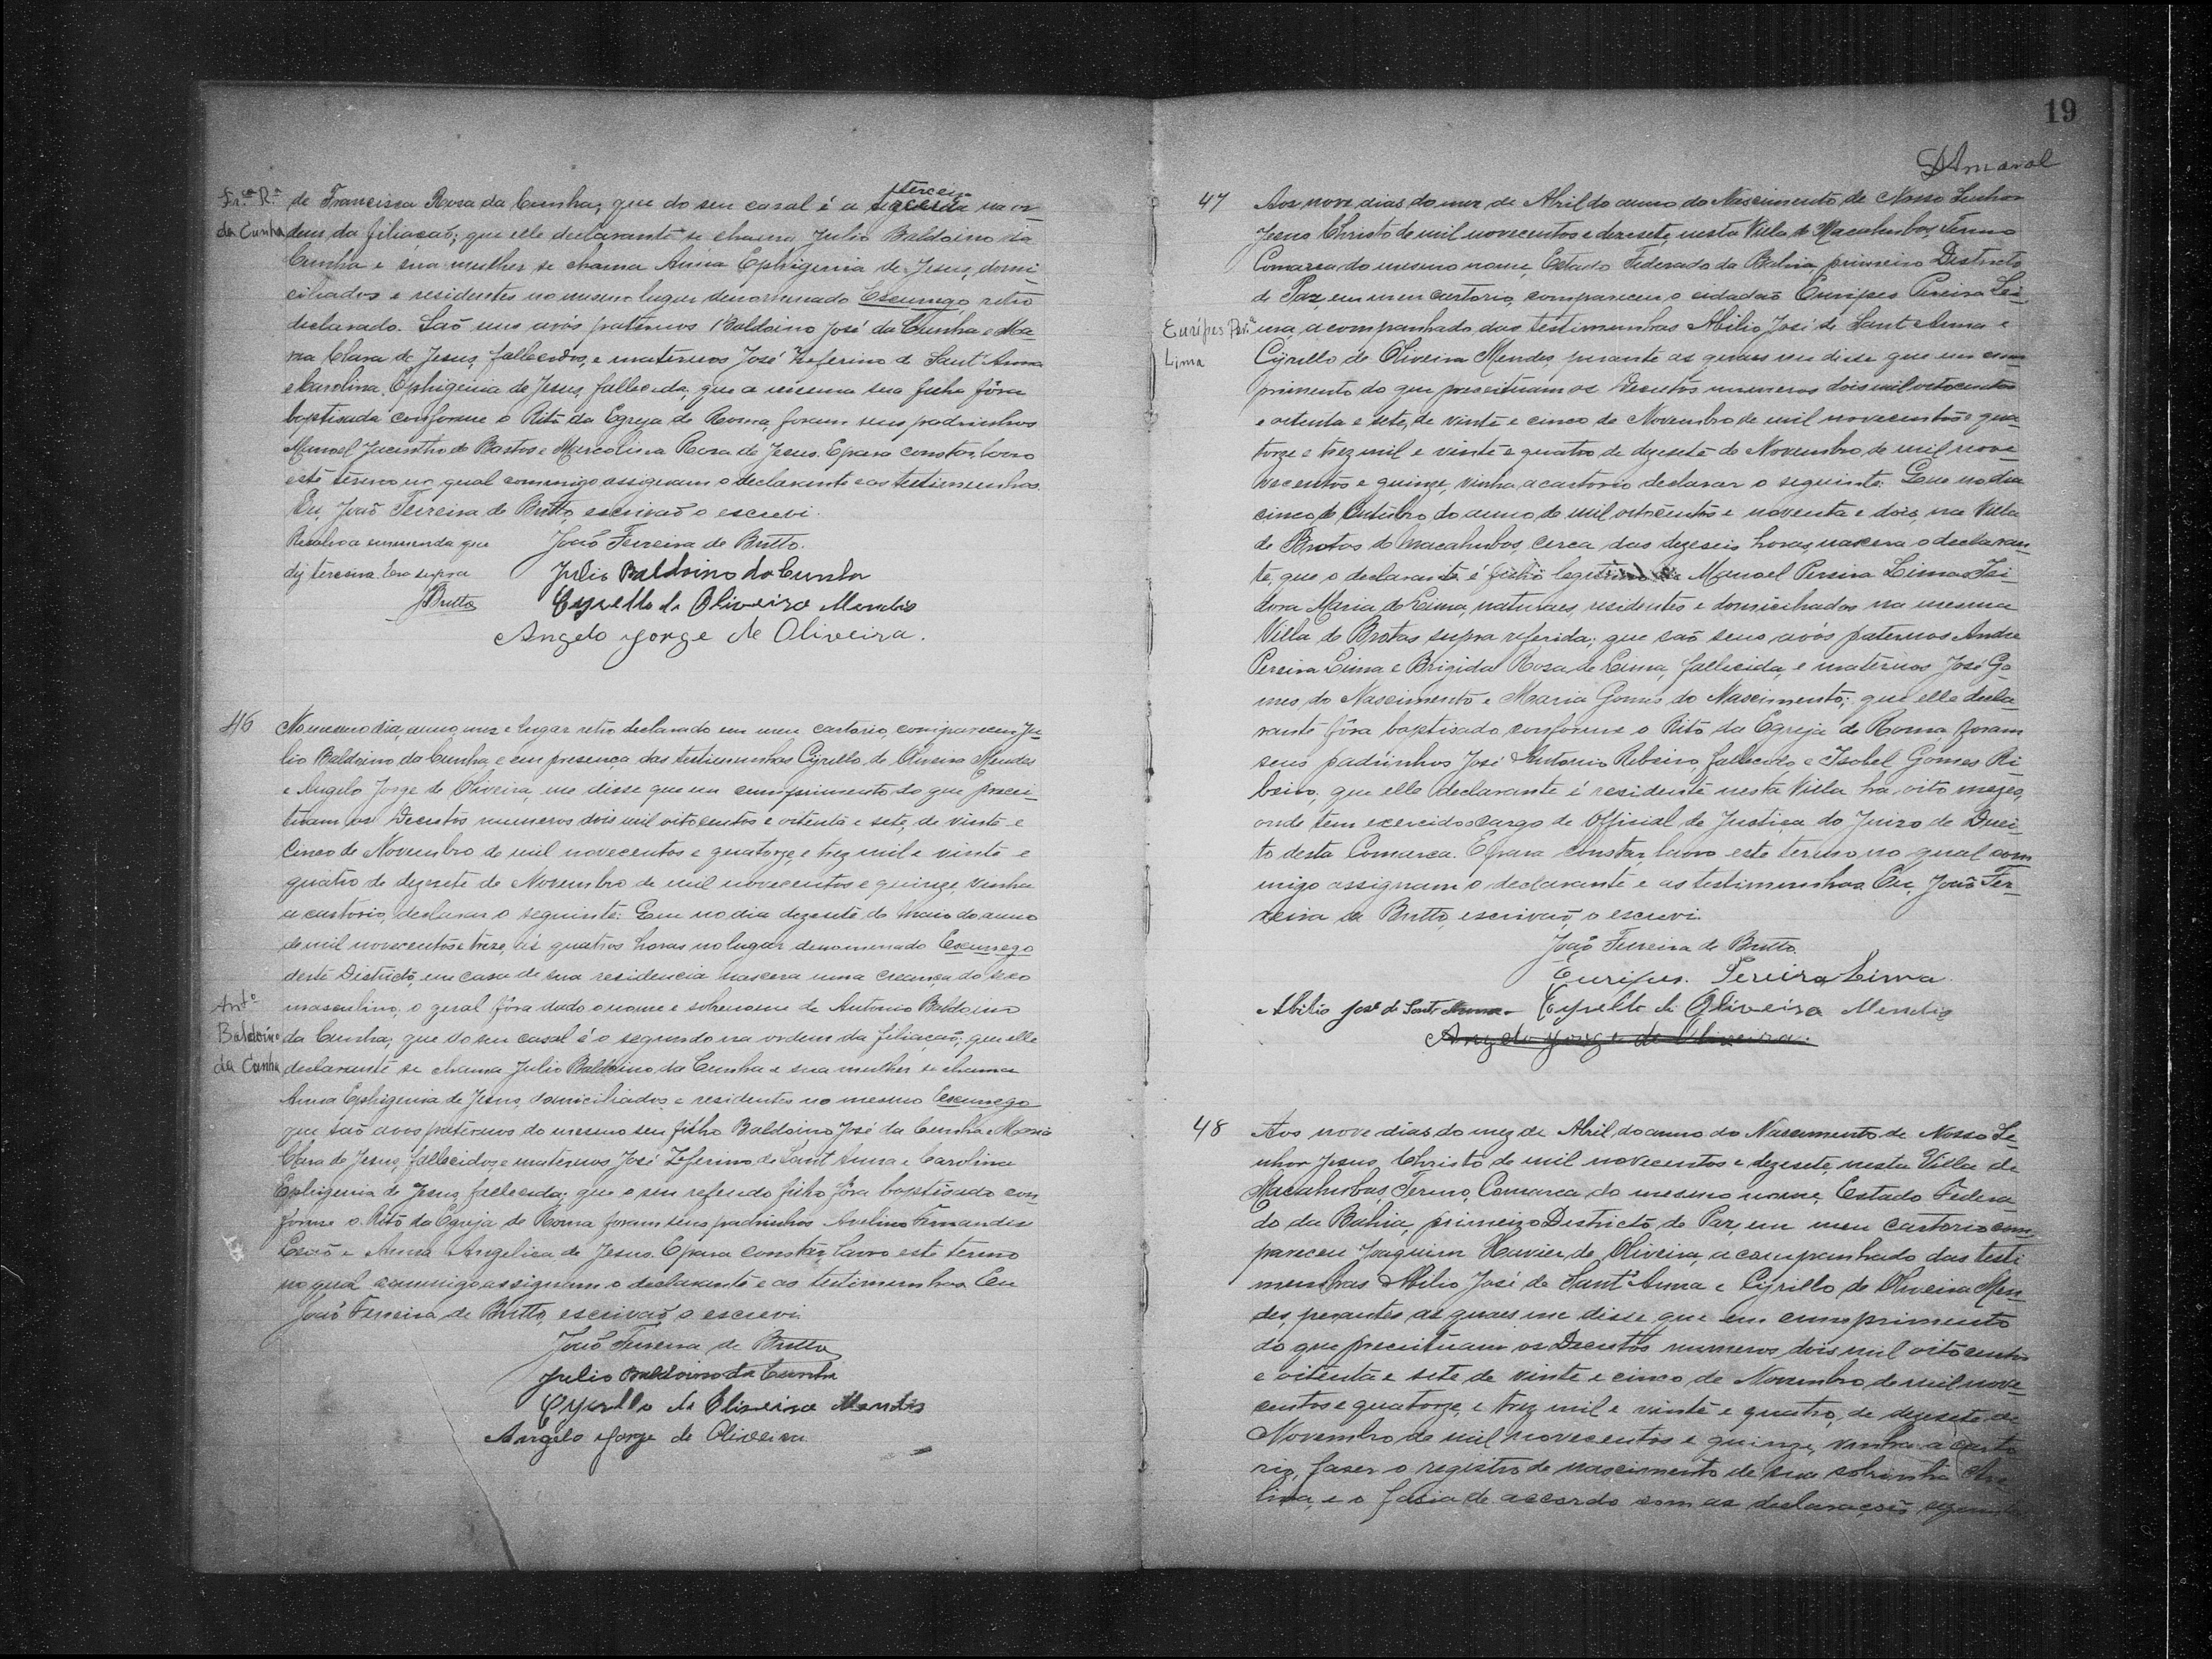 Fr.ca R.a de Francisca Rosa da Cunha; que do seu casal é a segunda terceira na or-
da Cunha dem da filiação; que elle declarante se chama Julio Baldoino da
Cunha e sua mulher se chama Anna Ephigenia de Jesus, domi-
ciliados e residentes no mesmo lugar denominado Escurrego, retro
declarado. São seus avós paternos Baldoino José da Cunha e Ma-
ria Clara de Jesus, fallecidos, e maternos José Zeferino de Sant'Anna
e Carolina Ephigenia de Jesus, fallecida; que a mesma sua filha fôra
baptisada conforme o Rito da Egreja de Roma, foram seus padrinhos
Manoel Jacintho de Bastos e Marcolina Rosa de Jesus. E para constar, lavro
este termo no qual commigo assignam o declarante e as testimunhas.
Eu, João Ferreira de Britto, escrivaõ o escrevi.
Resalvo a emmenda que João Ferreira de Britto.
diz terceira. Era supra Julio Baldoino da Cunha
JBritto Cyrillo de Oliveira Mendes
Angelo Jorge de Oliveira.
46 No mesmo dia, anno, mez e lugar retro declarado em meu cartorio, compareceu Ju-
lio Baldoino da Cunha, e em presença das testimunhas Cyrillo de Oliveira Mendes
e Angelo Jorge de Oliveira, me disse que em cumprimento do que precei-
tuam os Decretos numeros dois mil oitocentos e oitenta e sete, de vinte e
cinco de Novembro de mil novecentos e quatorze, e trez mil e vinte e
quatro de dezesete de Novembro de mil novecentos e quinze, vinha
a cartorio, declarar o seguinte: Que no dia dezesete de Maio do anno
de mil novecentos e treze, ás quatros horas no lugar denominado Escurrego
deste Districto, em casa de sua residencia nascera uma creança do sexo
Ant.o masculino, o qual fôra dado o nome e sobrenome de Antonio Baldoino
Baldoino da Cunha; que do seu casal é o segundo na ordem da filiação; que elle
da Cunha declarante se chama Julio Baldoino da Cunha e sua mulher se chama
Anna Ephigenia de Jesus, domiciliados e residentes no mesmo Escurrego
que saõ avos paternos do mesmo seu filho Baldoino José da Cunha e Maria
Clara de Jesus, fallecidos, e maternos José Zeferino de Sant'Anna e Carolina
Ephigenia de Jesus, fallecida; que o seu referido filho fôra baptisado con-
forme o Rito da Egreja de Roma foram seus padrinhos Avelino Fernandes
Leaõ e Anna Angelica de Jesus. E para constar, lavro este termo
no qual commigo assignam o declarante e as testimunhas. Eu
João Ferreira de Britto, escrivaõ o escrevi.
João Ferreira de Britto
Julio Baldoino da Cunha
Cyrillo de Oliveira Mendes
Angelo Jorge de Oliveira
19
DAmaral
47 Aos nove dias do mez de Abril do anno do Nascimento de Nosso Senhor
Jesus Christo de mil novecentos e dezesete, nesta Villa de Macahubas, Termo
Comarca do mesmo nome, Estado Federado da Bahia, primeiro Districto
de Paz, em meu cartorio, compareceu o cidadaõ Euripes Pereira Lei-
Euripes Per.a ma, acompanhado das testimunhas Abilio José de Sant'Anna e
Lima Cyrillo de Oliveira Mendes, perante as quaes me disse que em cum-
primento do que preceituam os Decretos numeros dois mil oitocentos
e oitenta e sete, de vinte e cinco de Novembro de mil novecentos e qua-
torze e trez mil e vinte e quatro de dezesete de Novembro de mil nove-
necentos e quinze, vinha a cartorio declarar o seguinte: Que no dia
cinco de Outubro do anno de mil oitocentos e noventa e dois, na Villa
de Brotas de Macahubas, cerca das dezeseis horas, nascera o declaran-
te, que o declarante é filho legitimo de Manoel Pereira Lima e Isi-
dora Maria de Lima, naturaes, residentes e domiciliados na mesma
Villa de Brotas supra referida; que saõ seus avós paternos Andre
Pereira Lima e Brigida Rosa de Lima, fallecida, e maternos José Go-
mes do Nascimento e Maria Gomes do Nascimento; que elle decla-
rante fôra baptisado conforme o Rito da Egreja de Roma, foram
seus padrinhos José Antonio Ribeiro, fallecido e Isabel Gomes Ri-
beiro; que elle declarante é residente nesta Villa ha oito mezes,
onde tem exercido o cargo de Official de Justiça do Juizo de Direi-
to desta Comarca. E para constar, lavro este termo no qual com-
migo assignam o declarante e as testimunhas. Eu, João Fer-
reira de Britto, escrivaõ, o escrevi.
João Ferreira de Britto
Euripes Pereira Lima
Abilio José de Sant'Anna Cyrillo de Oliveira Mendes
Angelo Jorge de Oliveira
48 Aos nove dias do mez de Abril do anno do Nascimento de Nosso Se-
nhor Jesus Christo de mil novecentos e dezesete, nesta Villa de
Macahubas, Termo, Comarca do mesmo nome, Estado Federa-
do da Bahia, primeiro Districto de Paz, em meu cartorio com-
pareceu Joaquim Xavier de Oliveira, acompanhado das testi
munhas Abilio José de Sant'Anna e Cyrillo de Oliveira Men-
des, perantes as quaes me disse que em cumprimento
do que preceituam os Decretos numeros dois mil oitocentos
e oitenta e sete de vinte e cinco de Novembro de mil nove-
centos e quatorze, e trez mil e vinte e quatro, de dezesete de
Novembro de mil novecentos e quinze, vinha a carto
rio, faser o registro de nascimento de sua sobrinha Ave
lina, e o fasia de accordo com as declarações